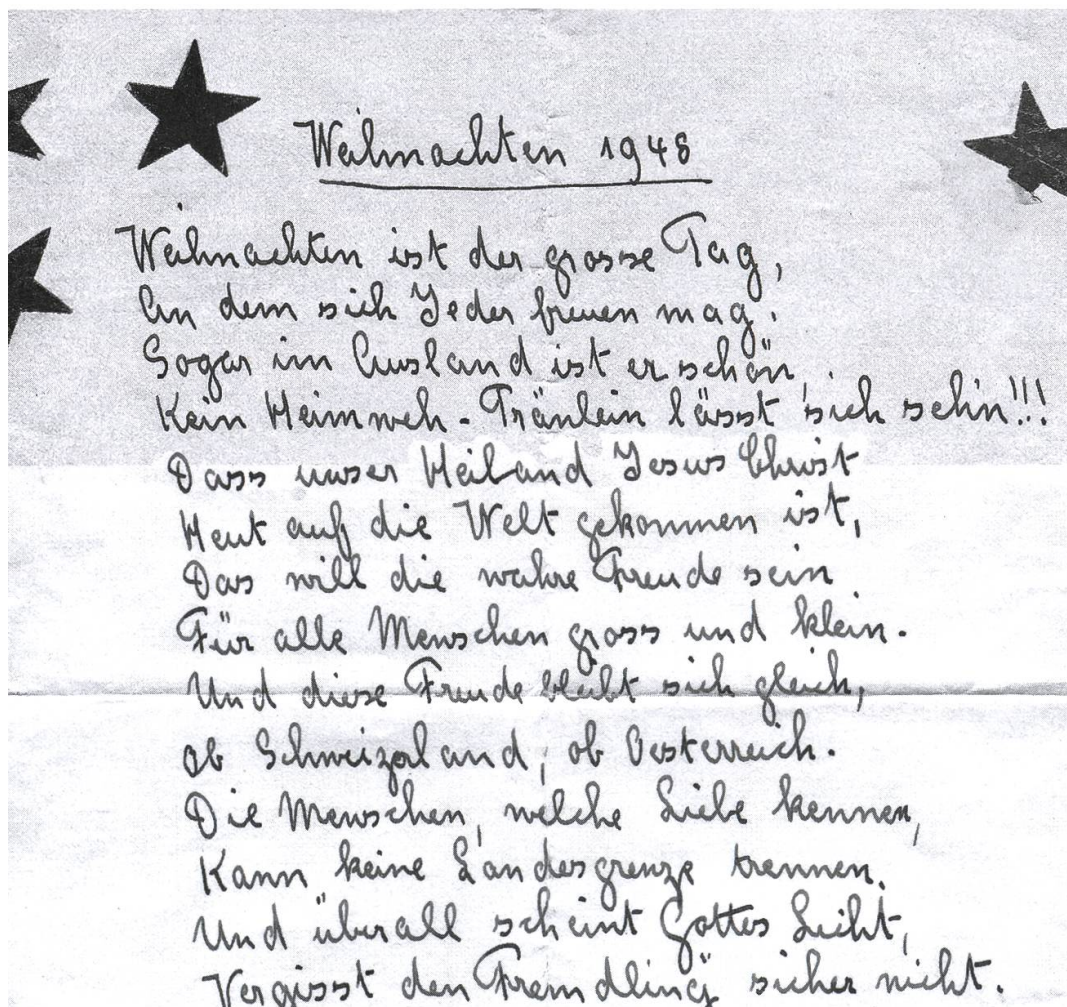 Weihnachten 1948
Weihnachten ist der grosse Tag,
An dem sich Jeder freuen mag.
Sogar im Ausland ist er schön,
Kein Heimweh-Fränlein lässt sich sehn!!!
Dass unser Heiland Jesus Christ
Heut auf die Welt gekommen ist,
Das will die wahre Freude sein
Für alle Menschen gross und klein.
Und diese Freude bleibt sich gleich,
Ob Schweizerland, ob Oesterreich.
Die Menschen, welche Liebe kennen,
Kann keine Landesgrenze trennen.
Und überall scheint Gottes Licht,
Vergisst den Fremdling sicher nicht.